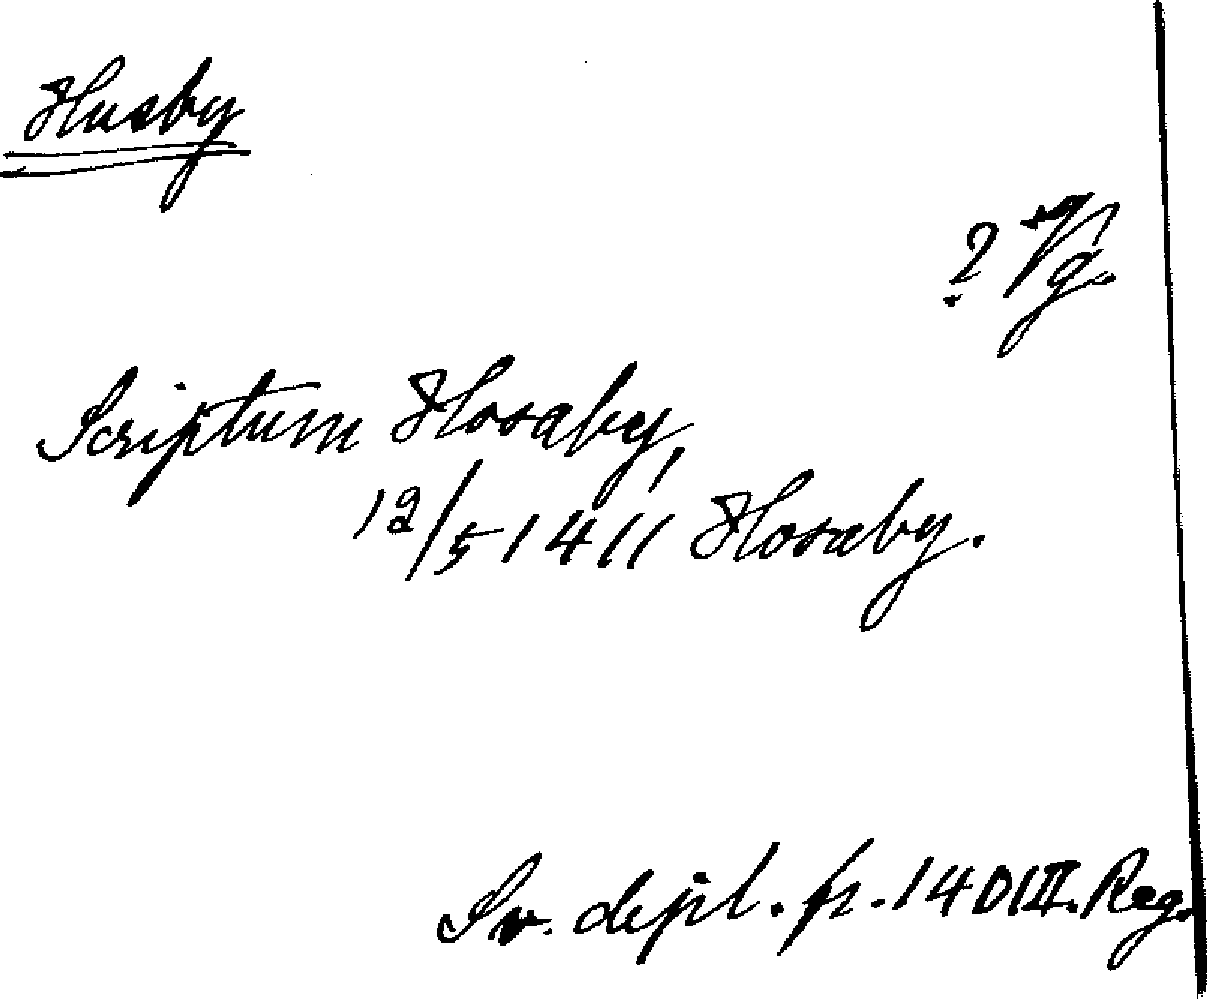 Husby
? Vg.
Scriptum Hosaby,
12/5 1411 Hosæby.
Sv. dipl. fr. 1401 II. Reg.